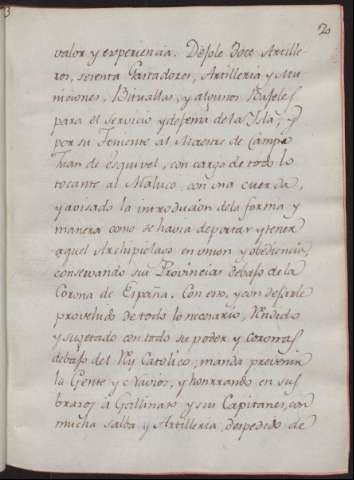 3
20
valor y experiencia. Dejole Doce Artille-
ros, sesenta Gastadores, Artilleria y Mu-
niciones, Bituallas, y algunos Bajeles
para el servicio y defensa de la Isla, y
por su Teniente al Maestre de Campo
Juan de esquivel, con cargo de todo lo
tocante al Maluco, con su cuerda,
y avisado la introducion dela forma y
manera como se havia deportar y tener
aquel Archipielago en union y obediencia,
conservando sus Provincias debajo de la
Corona de España. Con eso, y con dejarle
proveido de todo lo necesario, Rendido
y sujetado con todo su poder y Coronas
debajo del Rey Catolico; manda prevenir
la Gente y Navios, y honrrando en sus
brazos à Gallinato y sus Capitanes, con
mucha salba y Artilleria, despedido de